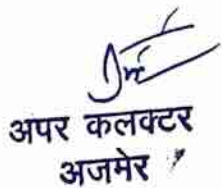 अपर कलक्टर
अजमेर